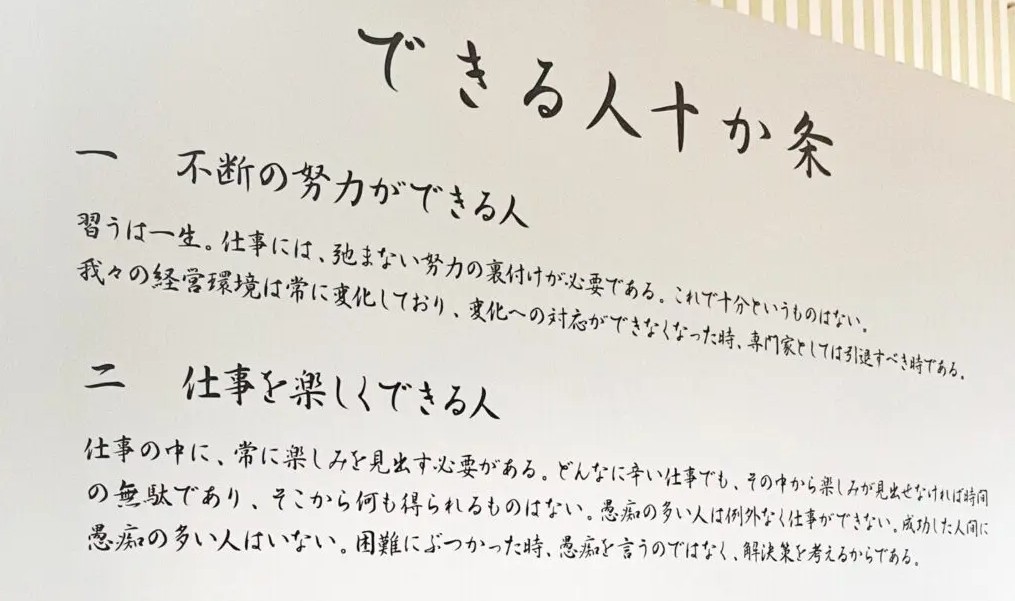 できる人十か条
一 不断の努力ができる人
習うは一生。仕事には、弛まない努力の裏付けが必要である。これで十分というものはない。
我々の経営環境は常に変化しており、変化への対応ができなくなった時、専門家としては引退すべき時である。
二 仕事を楽しくできる人
仕事の中に、常に楽しみを見出す必要がある。どんなに辛い仕事でも、その中から楽しみが見出せなければ時間
の無駄であり、そこから何も得られるものはない。愚痴の多い人は例外なく仕事ができない。成功した人間に
愚痴の多い人はいない。困難にぶつかった時、愚痴を言うのではなく、解決策を考えるからである。